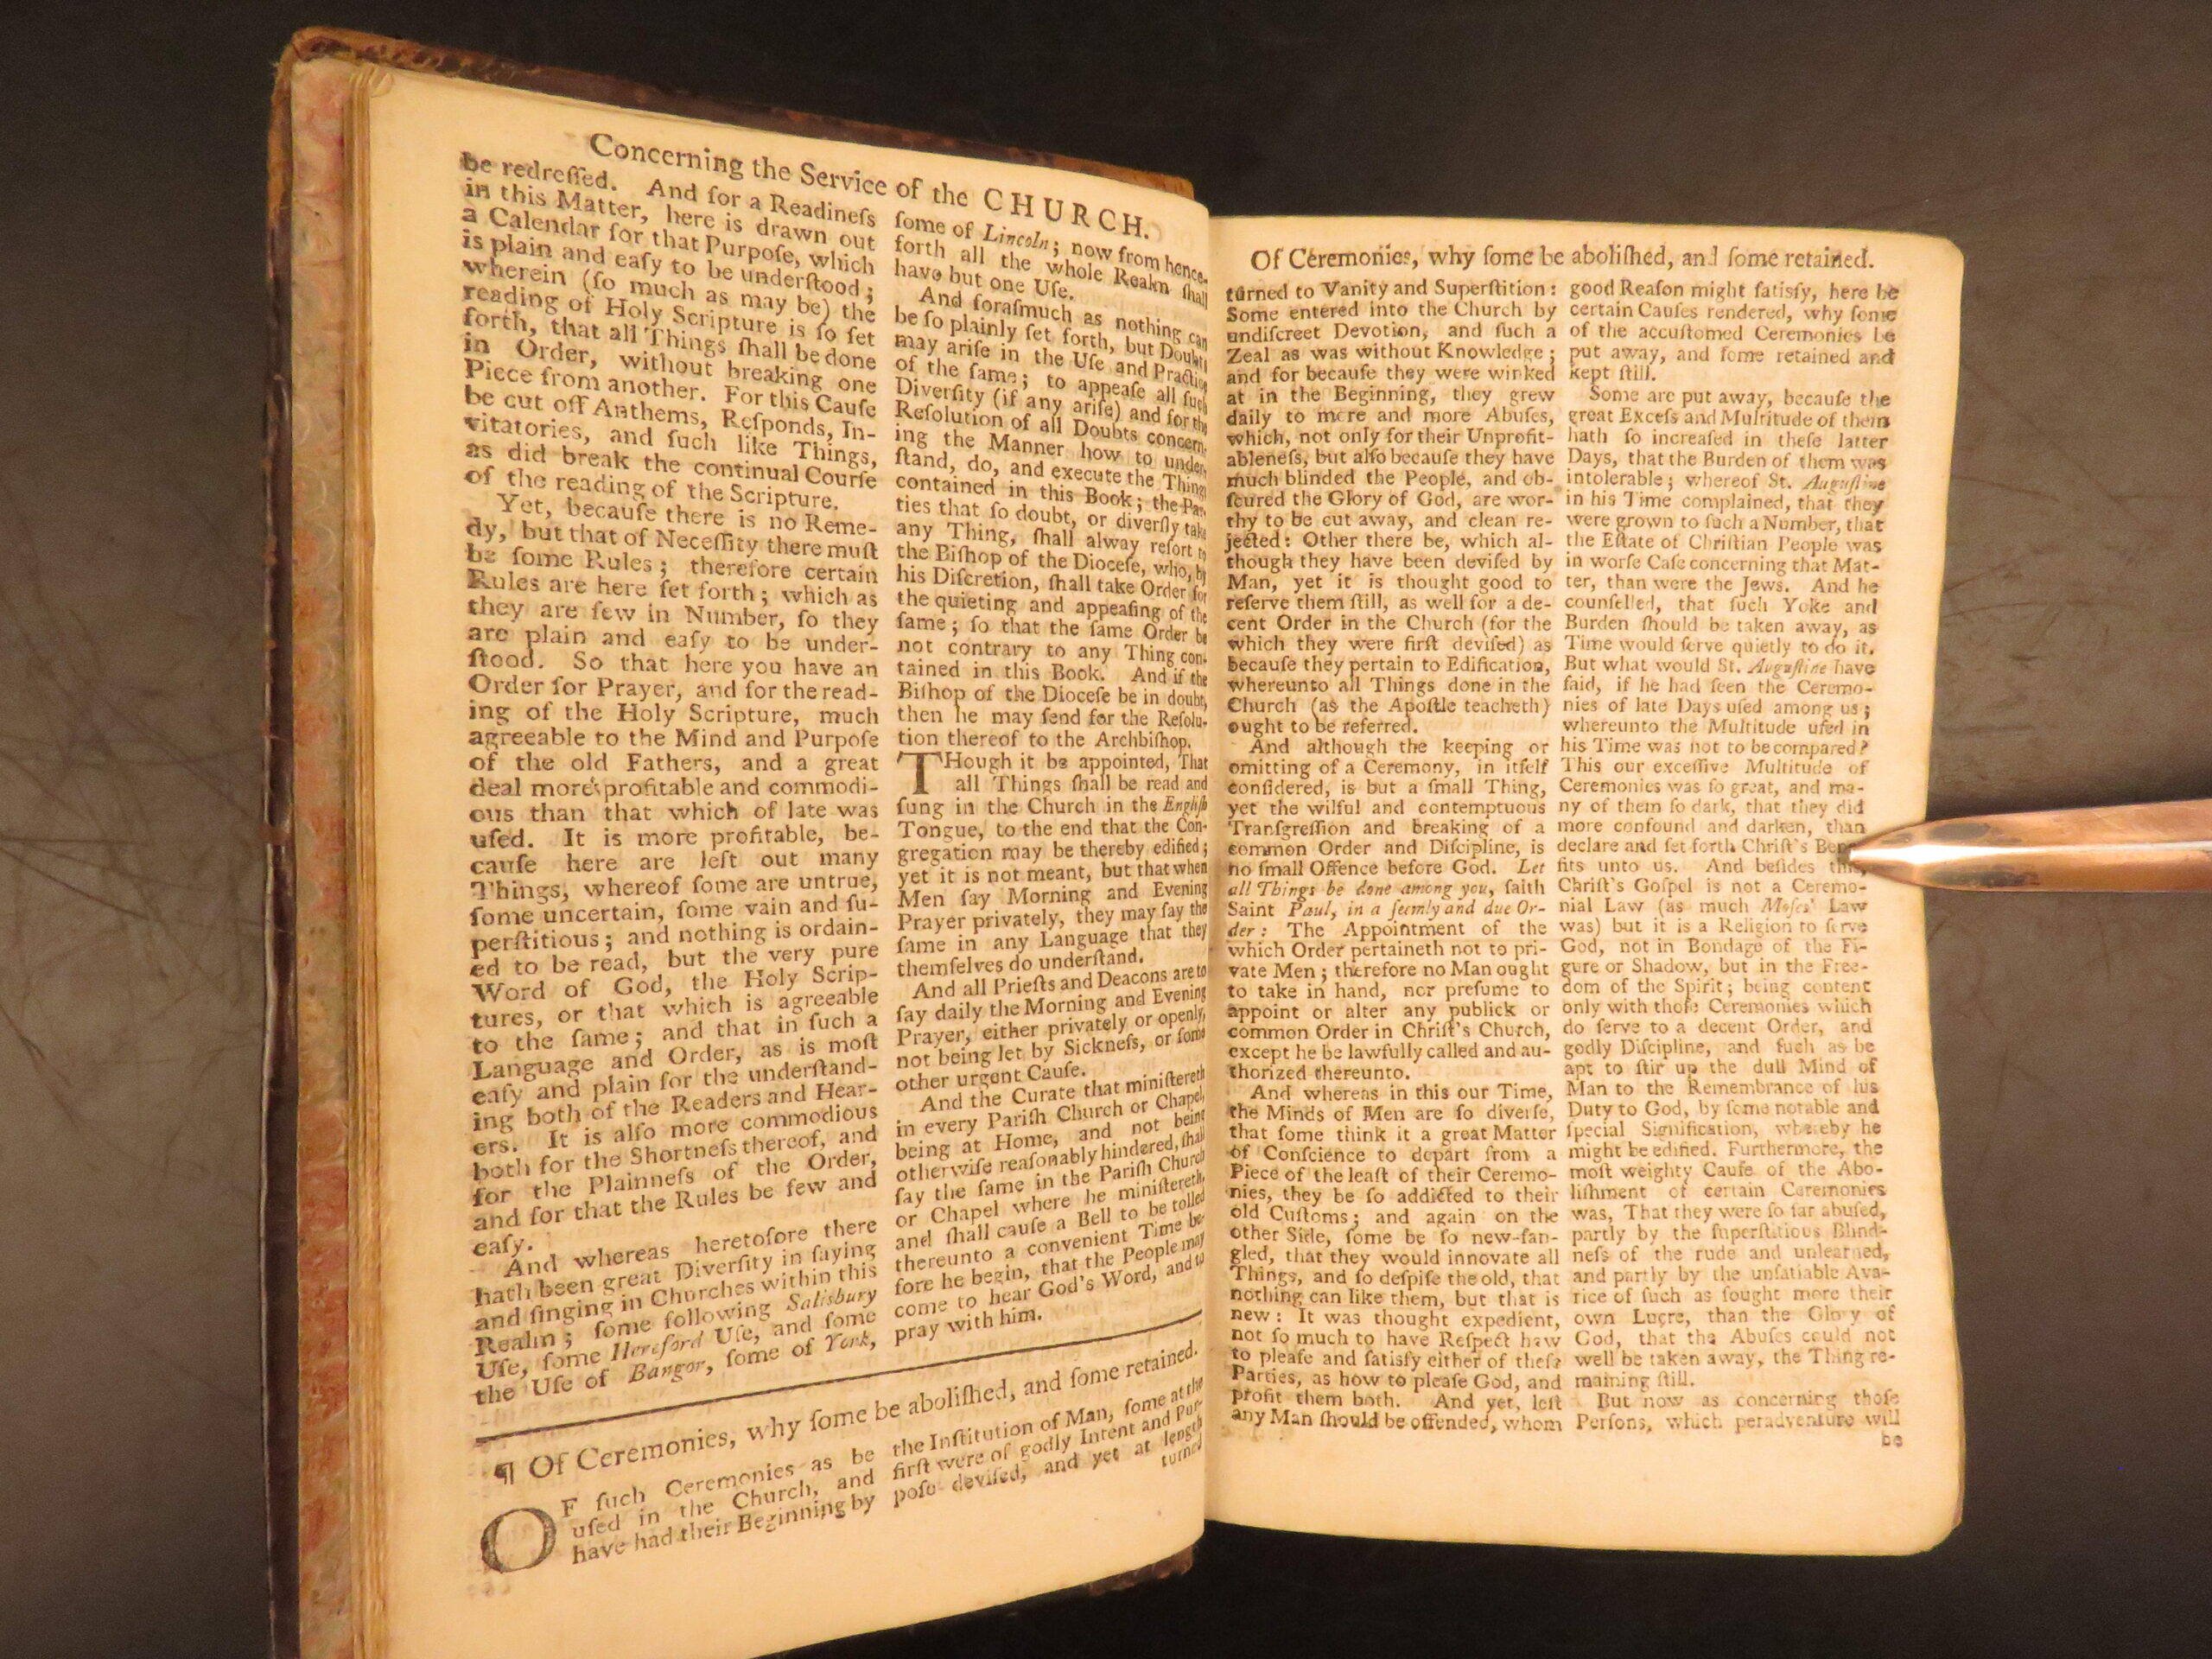 Concerning the Service of the CHURCH.
be redreſſed. And for a Readineſs
in this Matter, here is drawn out
a Calendar for that Purpoſe, which
is plain and eaſy to be underſtood;
wherein (ſo much as may be) the
reading of Holy Scripture is ſo ſet
forth, that all Things ſhall be done
in Order, without breaking one
Piece from another. For this Cauſe
be cut off Anthems, Reſponds, In-
vitatories, and ſuch like Things,
as did break the continual Courſe
of the reading of the Scripture.
Yet, becauſe there is no Reme-
dy, but that of Neceſſity there muſt
be ſome Rules; therefore certain
Rules are here ſet forth; which as
they are few in Number, ſo they
are plain and eaſy to be under-
ſtood. So that here you have an
Order for Prayer, and for the read-
ing of the Holy Scripture, much
agreeable to the Mind and Purpoſe
of the old Fathers, and a great
deal more profitable and commodi-
ous than that which of late was
uſed. It is more profitable, be-
cauſe here are left out many
Things, whereof ſome are untrue,
ſome uncertain, ſome vain and ſu-
perſtitious; and nothing is ordain-
ed to be read, but the very pure
Word of God, the Holy Scrip-
tures, or that which is agreeable
to the ſame; and that in ſuch a
Language and Order, as is moſt
eaſy and plain for the underſtand-
ing both of the Readers and Hear-
ers. It is alſo more commodious
both for the Shortneſs thereof, and
for the Plainneſs of the Order,
and for that the Rules be few and
eaſy.
And whereas heretofore there
hath been great Diverſity in ſaying
and ſinging in Churches within this
Realm; ſome following Salisbury
Uſe, ſome Hereford Uſe, and ſome
the Uſe of Bangor, ſome of York,
ſome of Lincoln; now from hence-
forth all the whole Realm ſhall
have but one Uſe.
And foraſmuch as nothing can
be ſo plainly ſet forth, but Doubts
may ariſe in the Uſe and Practice
of the ſame; to appeaſe all ſuch
Diverſity (if any ariſe) and for the
Reſolution of all Doubts concern-
ing the Manner how to under-
ſtand, do, and execute the Things
contained in this Book; the Par-
ties that ſo doubt, or diverſly take
any Thing, ſhall alway reſort to
the Biſhop of the Dioceſe, who, by
his Diſcretion, ſhall take Order for
the quieting and appeaſing of the
ſame; ſo that the ſame Order be
not contrary to any Thing con-
tained in this Book. And if the
Biſhop of the Dioceſe be in doubt,
then he may ſend for the Reſolu-
tion thereof to the Archbiſhop.
THough it be appointed, That
all Things ſhall be read and
ſung in the Church in the Engliſh
Tongue, to the end that the Con-
gregation may be thereby edified;
yet it is not meant, but that when
Men ſay Morning and Evening
Prayer privately, they may ſay the
ſame in any Language that they
themſelves do underſtand.
And all Prieſts and Deacons are to
ſay daily the Morning and Evening
Prayer, either privately or openly,
not being let by Sickneſs, or ſome
other urgent Cauſe.
And the Curate that miniſtereth
in every Pariſh Church or Chapel,
being at Home, and not being
otherwiſe reaſonably hindered, ſhall
ſay the ſame in the Pariſh Church
or Chapel where he miniſtereth,
and ſhall cauſe a Bell to be tolled
thereunto a convenient Time be-
fore he begin, that the People may
come to hear God's Word, and to
pray with him.
¶ Of Ceremonies, why ſome be aboliſhed, and ſome retained.
OF ſuch Ceremonies as be
uſed in the Church, and
have had their Beginning by
the Inſtitution of Man, ſome at the
firſt were of godly Intent and Pur-
poſe deviſed, and yet at length
turned
Of Ceremonies, why ſome be aboliſhed, and ſome retained.
turned to Vanity and Superſtition:
Some entered into the Church by
undiſcreet Devotion, and ſuch a
Zeal as was without Knowledge;
and for becauſe they were winked
at in the Beginning, they grew
daily to more and more Abuſes,
which, not only for their Unprofit-
ableneſs, but alſo becauſe they have
much blinded the People, and ob-
ſcured the Glory of God, are wor-
thy to be cut away, and clean re-
jected: Other there be, which al-
though they have been deviſed by
Man, yet it is thought good to
reſerve them ſtill, as well for a de-
cent Order in the Church (for the
which they were firſt deviſed) as
becauſe they pertain to Edification,
whereunto all Things done in the
Church (as the Apoſtle teacheth)
ought to be referred.
And although the keeping or
omitting of a Ceremony, in itſelf
conſidered, is but a ſmall Thing,
yet the wilful and contemptuous
Tranſgreſſion and breaking of a
common Order and Diſcipline, is
no ſmall Offence before God. Let
all Things be done among you, ſaith
Saint Paul, in a ſeemly and due Or-
der: The Appointment of the
which Order pertaineth not to pri-
vate Men; therefore no Man ought
to take in hand, nor preſume to
appoint or alter any publick or
common Order in Chriſt's Church,
except he be lawfully called and au-
thorized thereunto.
And whereas in this our Time,
the Minds of Men are ſo diverſe,
that ſome think it a great Matter
of Conſcience to depart from a
Piece of the leaſt of their Ceremo-
nies, they be ſo addicted to their
old Cuſtoms; and again on the
other Side, ſome be ſo new-fan-
gled, that they would innovate all
Things, and ſo deſpiſe the old, that
nothing can like them, but that is
new: It was thought expedient,
not ſo much to have Reſpect how
to pleaſe and ſatisfy either of theſe
Parties, as how to pleaſe God, and
profit them both. And yet, leſt
any Man ſhould be offended, whom
good Reaſon might ſatisfy, here be
certain Cauſes rendered, why ſome
of the accuſtomed Ceremonies be
put away, and ſome retained and
kept ſtill.
Some are put away, becauſe the
great Exceſs and Multitude of them
hath ſo increaſed in theſe latter
Days, that the Burden of them was
intolerable; whereof St. Auguſtine
in his Time complained, that they
were grown to ſuch a Number, that
the Eſtate of Chriſtian People was
in worſe Caſe concerning that Mat-
ter, than were the Jews. And he
counſelled, that ſuch Yoke and
Burden ſhould be taken away, as
Time would ſerve quietly to do it.
But what would St. Auguſtine have
ſaid, if he had ſeen the Ceremo-
nies of late Days uſed among us;
whereunto the Multitude uſed in
his Time was not to be compared?
This our exceſſive Multitude of
Ceremonies was ſo great, and ma-
ny of them ſo dark, that they did
more confound and darken, than
declare and ſet forth Chriſt's Bene-
fits unto us. And beſides this,
Chriſt's Goſpel is not a Ceremo-
nial Law (as much Moſes' Law
was) but it is a Religion to ſerve
God, not in Bondage of the Fi-
gure or Shadow, but in the Free-
dom of the Spirit; being content
only with thoſe Ceremonies which
do ſerve to a decent Order, and
godly Diſcipline, and ſuch as be
apt to ſtir up the dull Mind of
Man to the Remembrance of his
Duty to God, by ſome notable and
ſpecial Signification, whereby he
might be edified. Furthermore, the
moſt weighty Cauſe of the Abo-
liſhment of certain Ceremonies
was, That they were ſo far abuſed,
partly by the ſuperſtitious Blind-
neſs of the rude and unlearned,
and partly by the unſatiable Ava-
rice of ſuch as ſought more their
own Lucre, than the Glory of
God, that the Abuſes could not
well be taken away, the Thing re-
maining ſtill.
But now as concerning thoſe
Perſons, which peradventure will
be